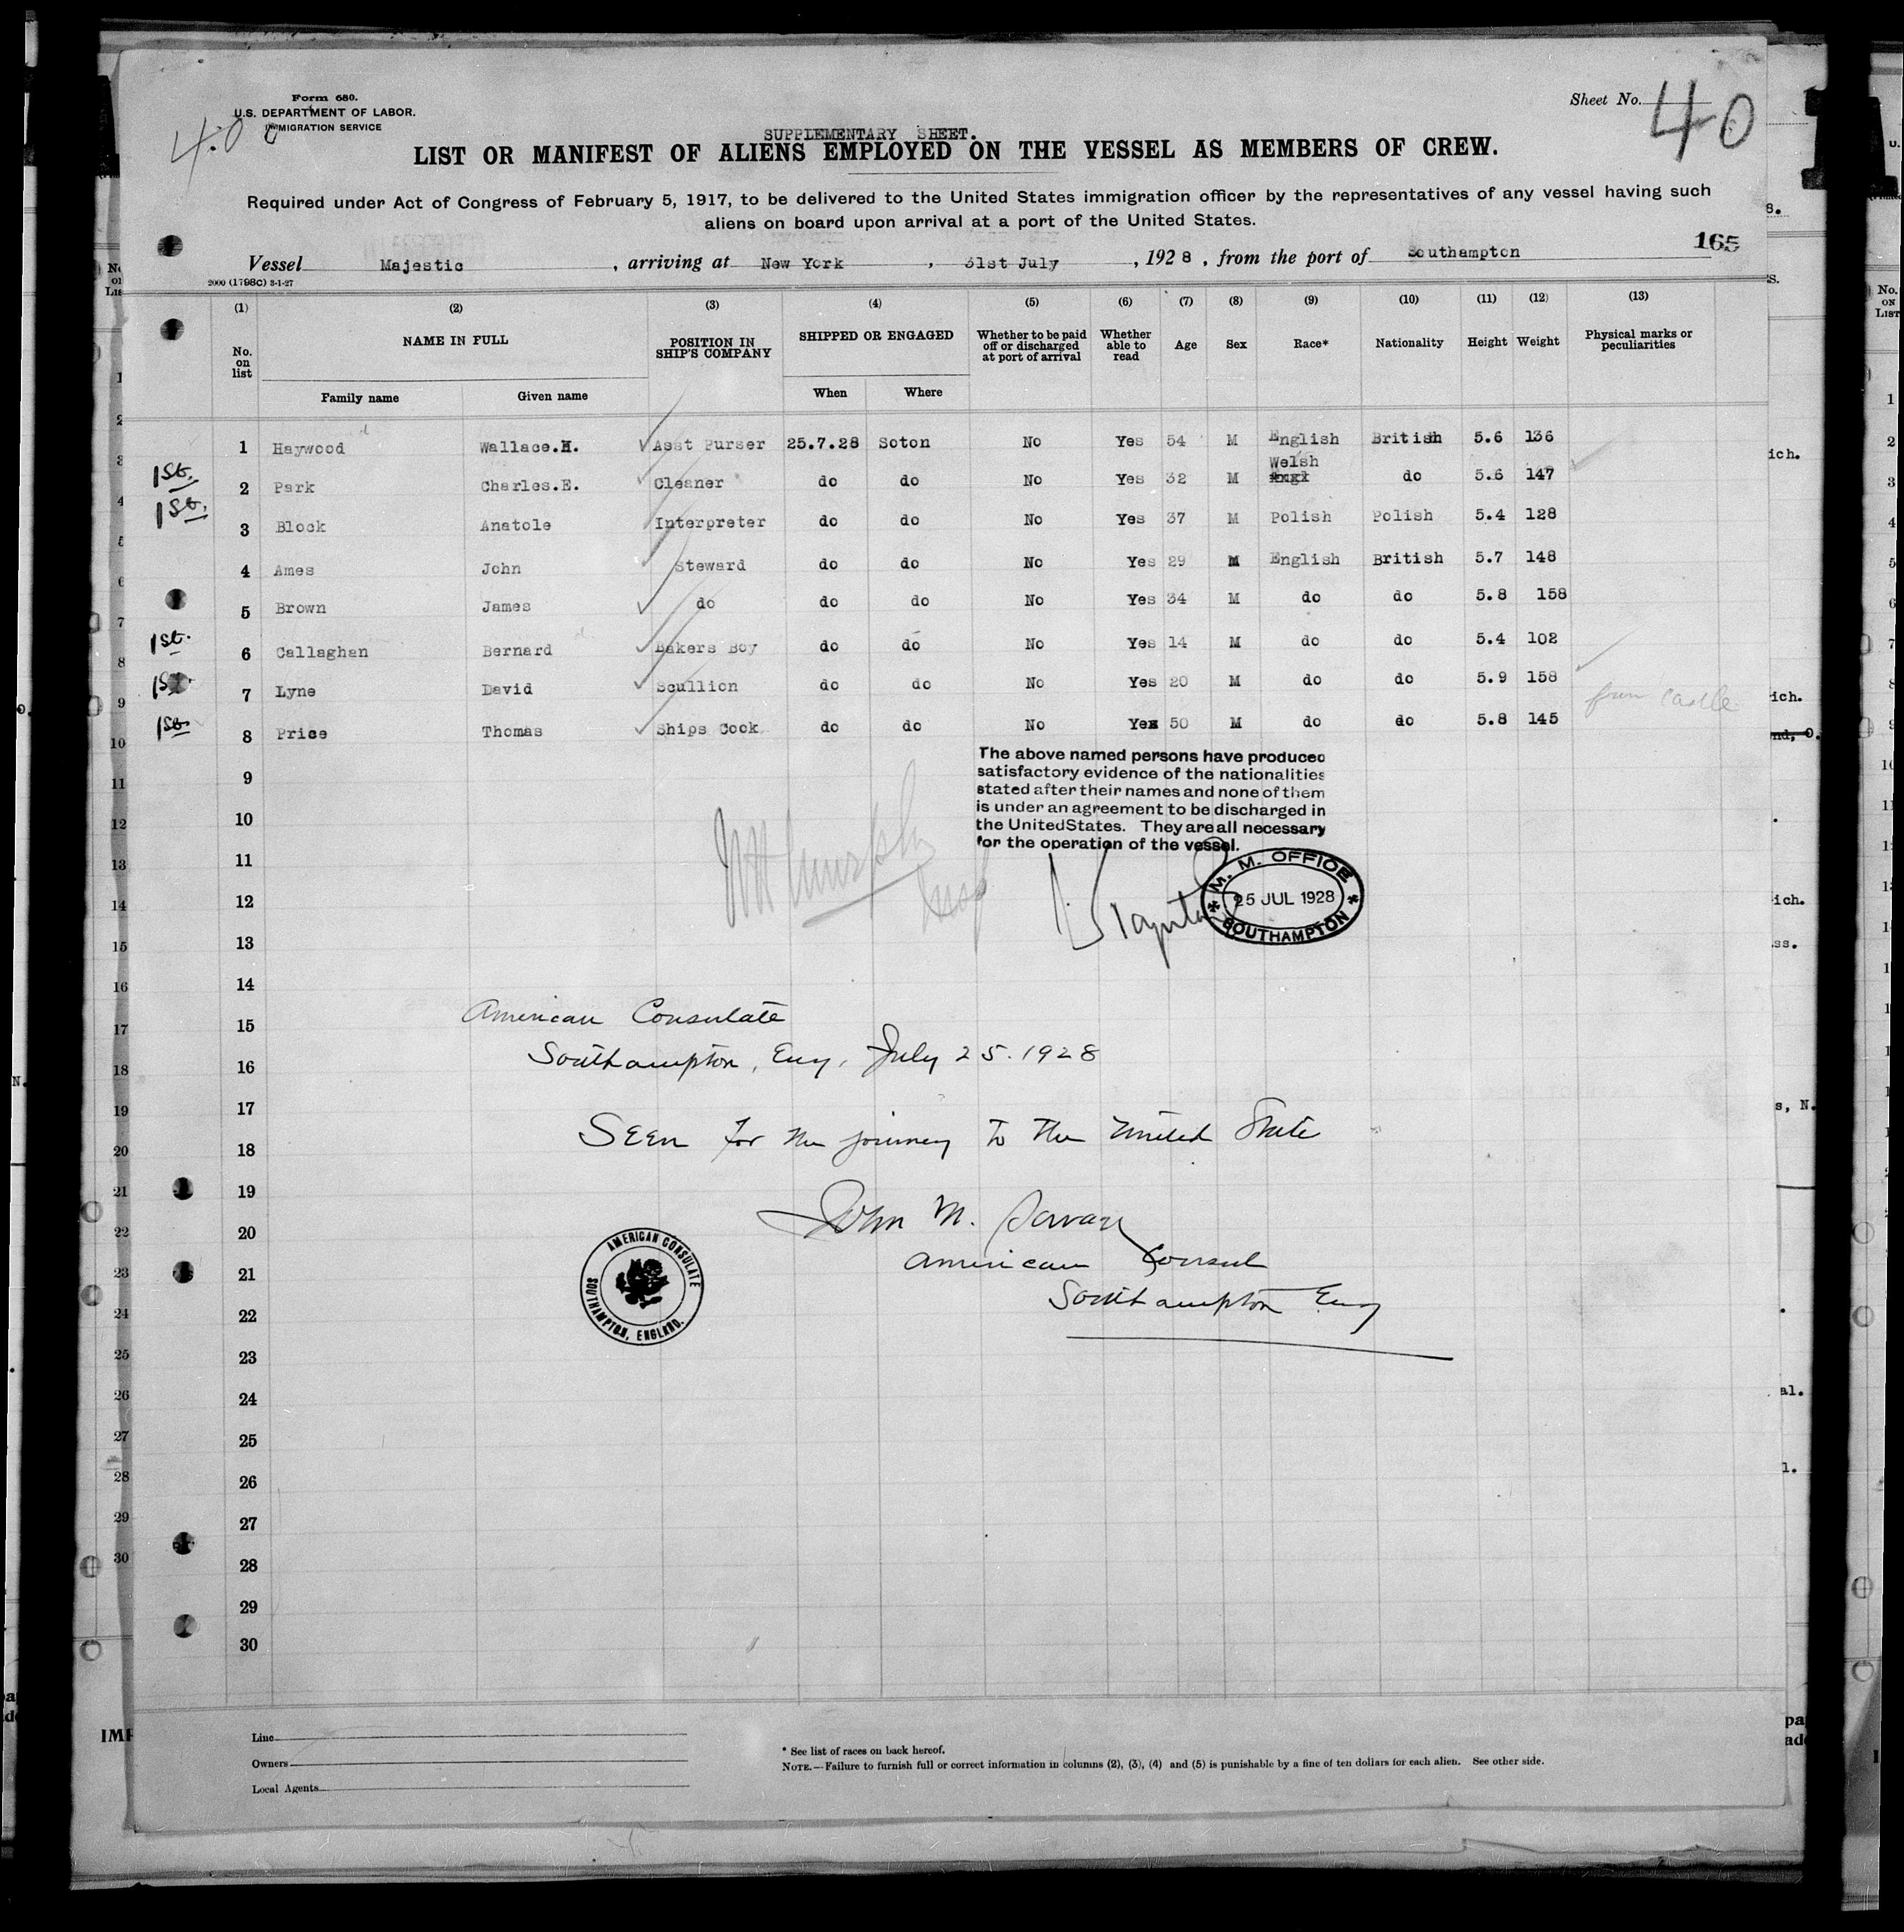 Form 680.
U.S. DEPARTMENT OF LABOR.
IMMIGRATION SERVICE
Sheet No. 40
SUPPLEMENTARY SHEET.
LIST OR MANIFEST OF ALIENS EMPLOYED ON THE VESSEL AS MEMBERS OF CREW.
Required under Act of Congress of February 5, 1917, to be delivered to the United States immigration officer by the representatives of any vessel having such
aliens on board upon arrival at a port of the United States.
165
Vessel Majestic, arriving at New York, 31st July, 1928, from the port of Southampton
2000 (1798C) 3-1-27
(1) (2) (3) (4) (5) (6) (7) (8) (9) (10) (11) (12) (13)
No. on list NAME IN FULL POSITION IN SHIP'S COMPANY SHIPPED OR ENGAGED Whether to be paid off or discharged at port of arrival Whether able to read Age Sex Race* Nationality Height Weight Physical marks or peculiarities
Family name Given name When Where
1 Haywood Wallace.H. Asst Purser 25.7.28 Soton No Yes 54 M English British 5.6 136
1st. 2 Park Charles.E. Cleaner do do No Yes 32 M Welsh do 5.6 147
1st. 3 Block Anatole Interpreter do do No Yes 37 M Polish Polish 5.4 128
4 Ames John Steward do do No Yes 29 M English British 5.7 148
5 Brown James do do do No Yes 34 M do do 5.8 158
1st. 6 Callaghan Bernard Bakers Boy do do No Yes 14 M do do 5.4 102
1st. 7 Lyne David Scullion do do No Yes 20 M do do 5.9 158
1st. 8 Price Thomas Ships Cook do do No Yes 50 M do do 5.8 145
The above named persons have produced
satisfactory evidence of the nationalities
stated after their names and none of them
is under an agreement to be discharged in
the United States. They are all necessary
for the operation of the vessel.
M. M. OFFICE
25 JUL 1928
SOUTHAMPTON
9
10
11
12
13
14
15
16
17
18
19
20
21
22
23
24
25
26
27
28
29
30
American Consulate
Southampton, Eng, July 25. 1928
Seen for the journey to the United State
John M. Savage
American Consul
Southampton Eng
AMERICAN CONSULATE
SOUTHAMPTON, ENGLAND.
Line
Owners
Local Agents
* See list of races on back hereof.
NOTE.—Failure to furnish full or correct information in columns (2), (3), (4) and (5) is punishable by a fine of ten dollars for each alien. See other side.